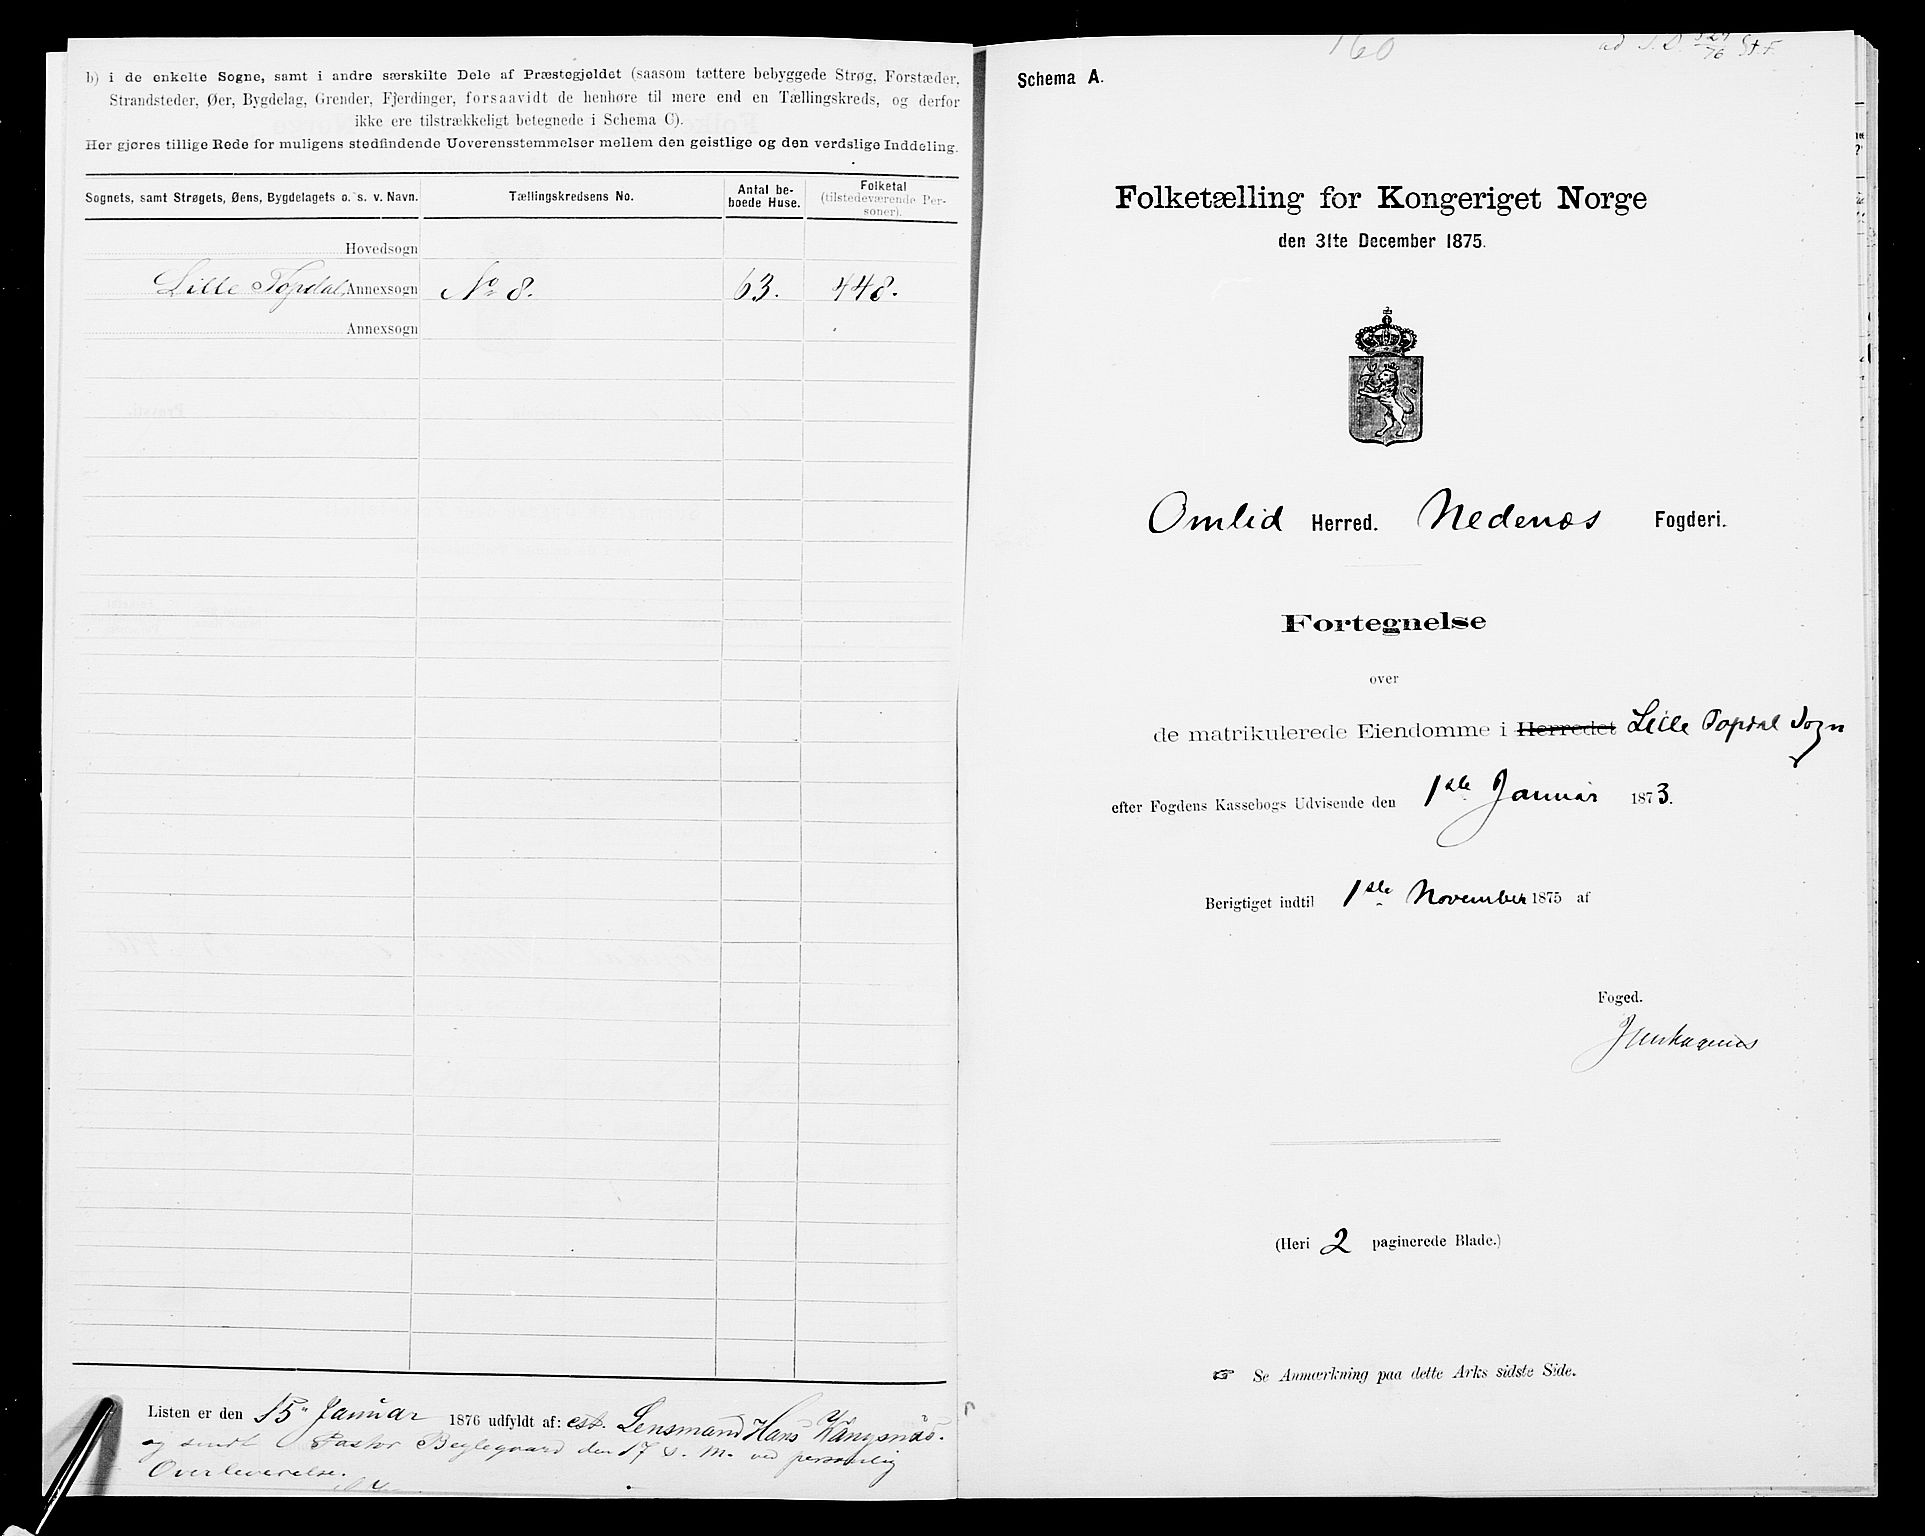 b) i de enkelte Sogne, samt i andre særskilte Dele af Præstegjeldet (saasom tættere bebyggede Strøg, Forstæder,
Strandsteder, Øer, Bygdelag, Grender, Fjerdinger, forsaavidt de henhøre til mere end en Tællingskreds, og derfor
ikke ere tilstrækkeligt betegnede i Schema C).
Her gjøres tillige Rede for muligens stedfindende Uoverensstemmelser mellem den geistlige og den verdslige Inddeling.
Sognets, samt Strøgets, Øens, Bygdelagets o. s. v. Navn. Tællingskredsens No. Antal beboede Huse. Folketal (tilstedeværende Personer).
Hovedsogn
Lille Topdal Annexsogn No 8. 63. 448.
Annexsogn
Listen er den 15 Januar 1876 udfyldt af: cst. Lensmand Hans
og sendt Pastor den 17 d. M. ved personlig
Overleverelse.
160
Schema A.
Folketælling for Kongeriget Norge
den 31te December 1875.
Omlid Herred. Nedenæs Fogderi.
Fortegnelse
over
de matrikulerede Eiendomme i Herredet Lille Topdal Sogn
efter Fogdens Kassebogs Udvisende den 1ste Januar 1873.
Berigtiget indtil 1ste November 1875 af
Foged.
(Heri 2 paginerede Blade.)
☞ Se Anmærkning paa dette Arks sidste Side.